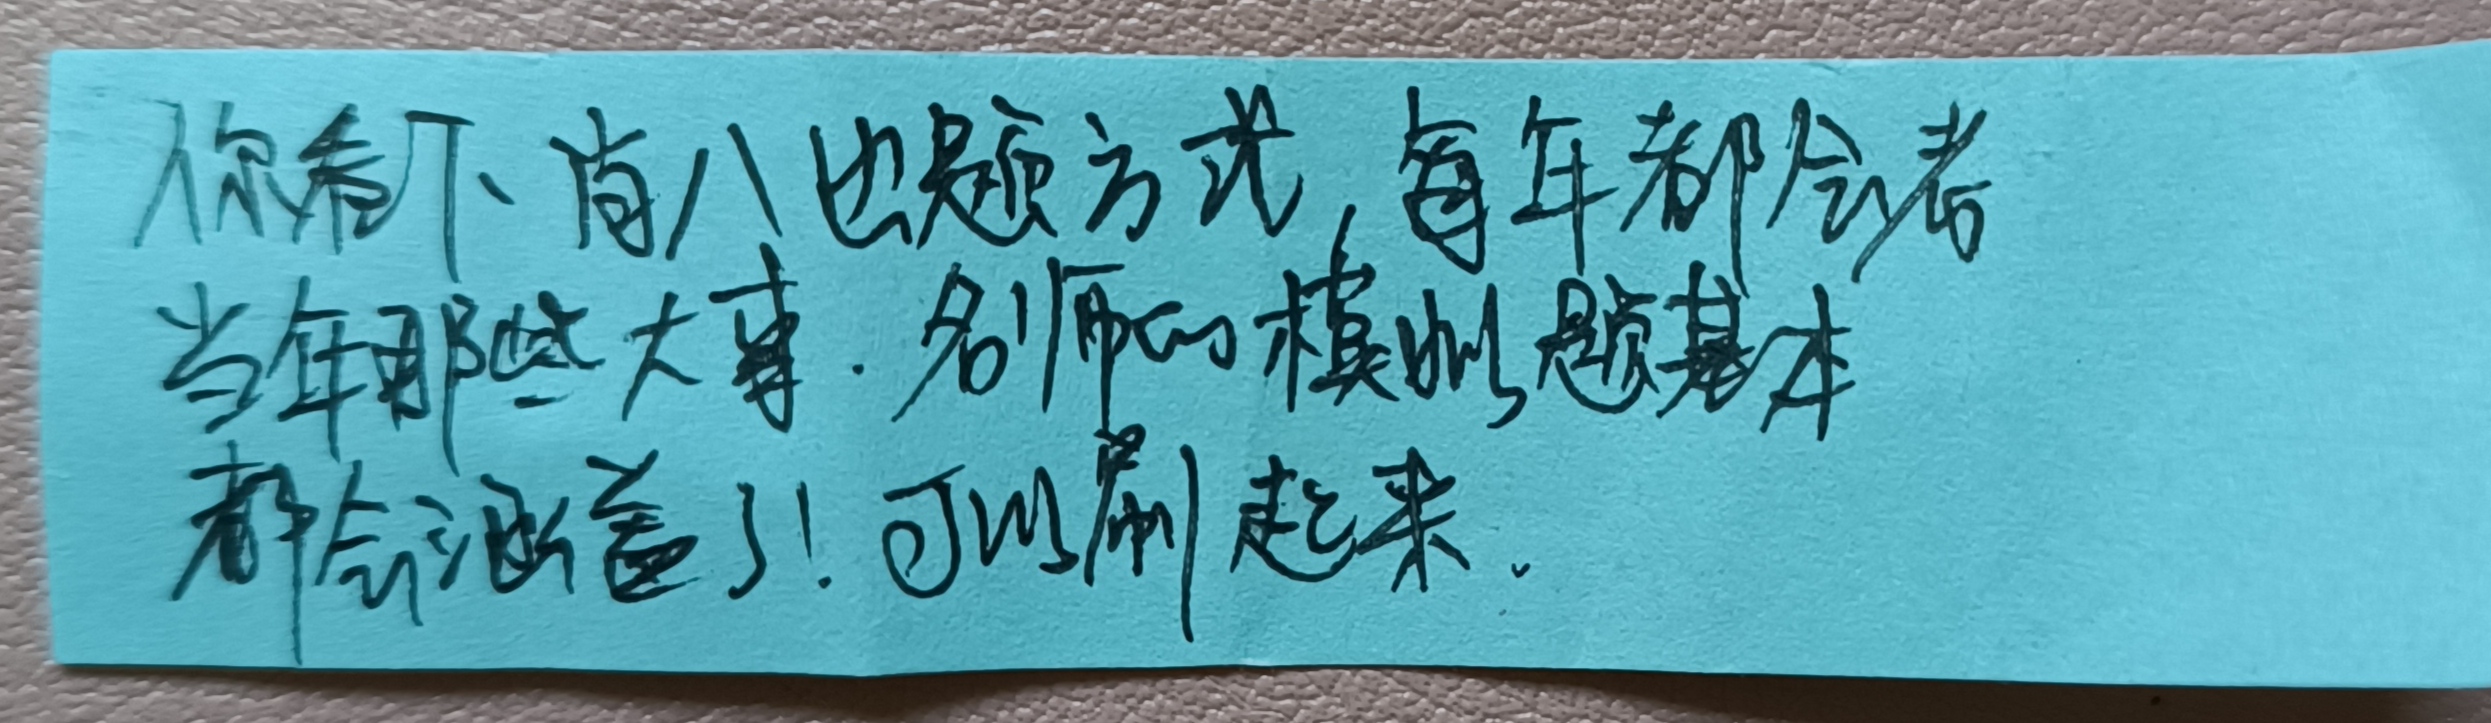 你看下、肖八出题方式，每年都会考
当年那些大事.名师的模拟题基本
都会涵盖了!可以刷起来.